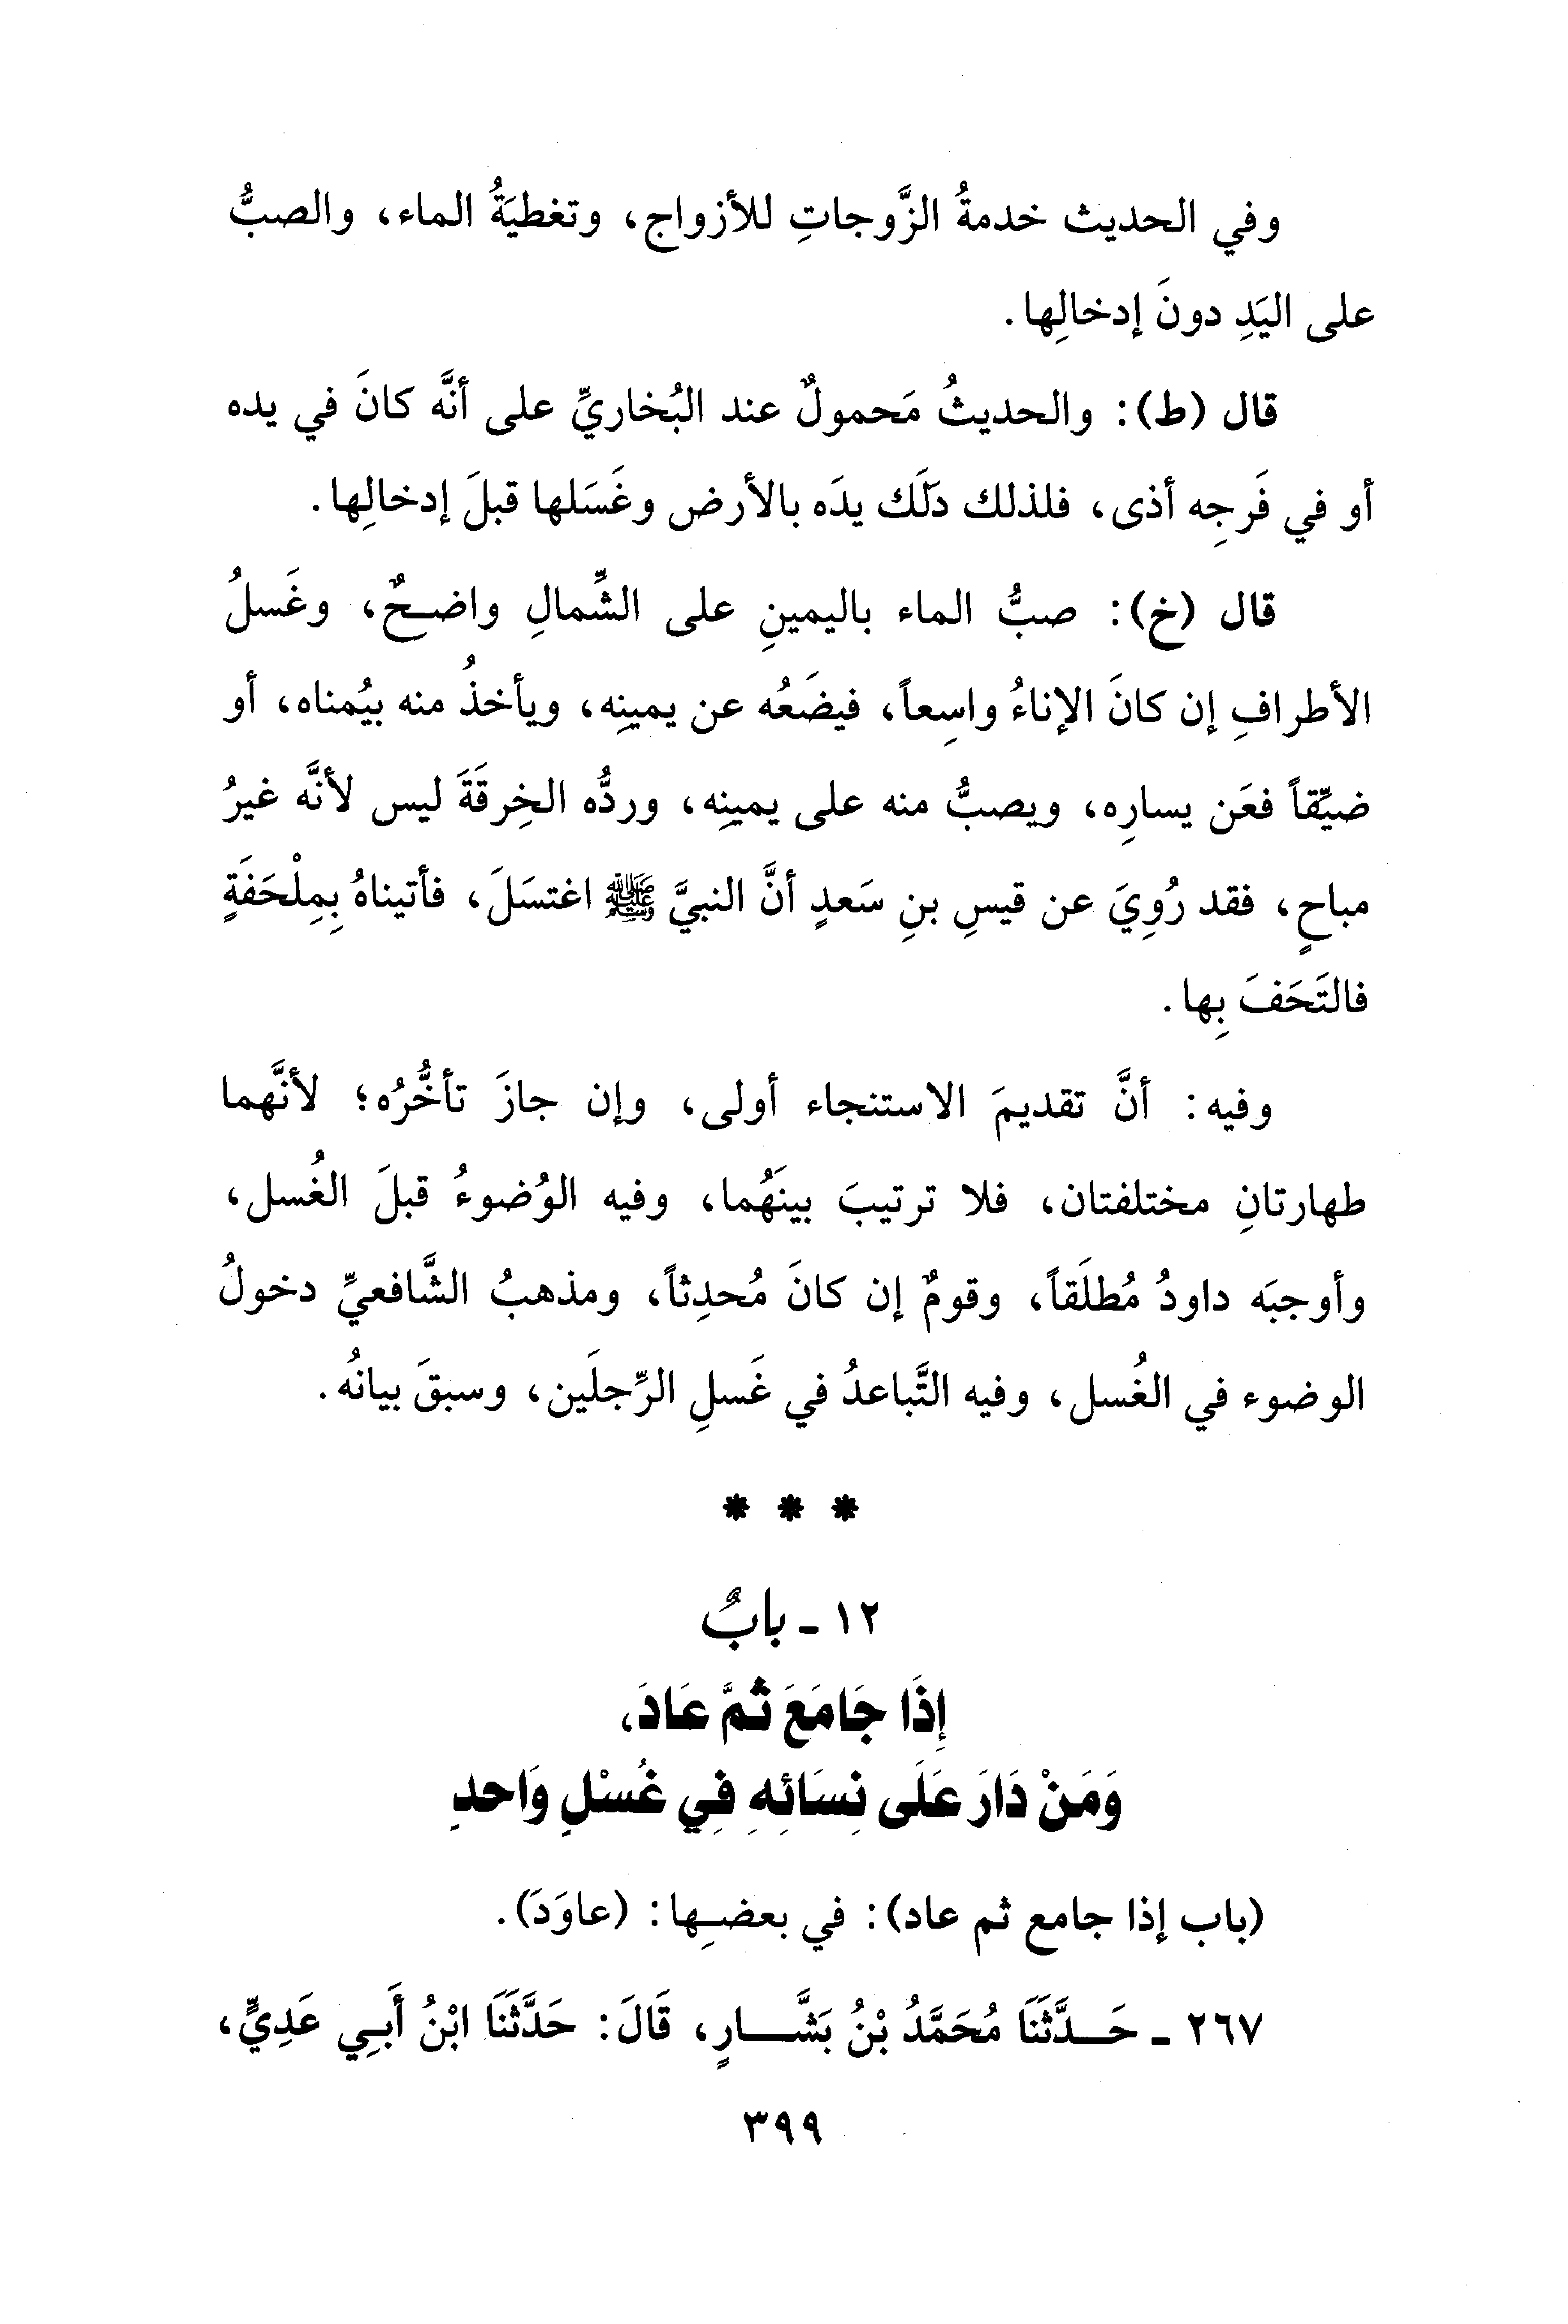 وفي الحديث خدمةُ الزَّوجاتِ للأزواج، وتغطيَةُ الماء، والصبُّ
على اليَدِ دونَ إدخالِها.
قال (ط): والحديثُ مَحمولٌ عند البُخاريِّ على أنَّه كانَ في يده
أو في فَرجِه أذى، فلذلك دَلَك يدَه بالأرض وغَسَلها قبلَ إدخالِها.
قال (خ): صبُّ الماء باليمينِ على الشِّمالِ واضحٌ، وغَسلُ
الأطرافِ إن كانَ الإناءُ واسِعاً، فيضَعُه عن يمينِه، ويأخذُ منه بيُمناه، أو
ضيِّقاً فعَن يسارِه، ويصبُّ منه على يمينِه، وردُّه الخِرقَةَ ليس لأنَّه غيرُ
مباحٍ، فقد رُوِيَ عن قيسِ بنِ سَعدٍ أنَّ النبيَّ ﷺ اغتسَلَ، فأتيناهُ بِمِلْحَفَةٍ
فالتَحَفَ بِها.
وفيه: أنَّ تقديمَ الاستنجاء أولى، وإن جازَ تأخُّرُه؛ لأنَّهما
طهارتانِ مختلفتان، فلا ترتيبَ بينَهُما، وفيه الوُضوءُ قبلَ الغُسل،
وأوجبَه داودُ مُطلَقاً، وقومٌ إن كانَ مُحدِثاً، ومذهبُ الشَّافعيِّ دخولُ
الوضوء في الغُسل، وفيه التَّباعدُ في غَسلِ الرِّجلَين، وسبقَ بيانُه.
* * *
١٢ - بابٌ
إِذَا جَامَعَ ثُمَّ عَادَ،
وَمَنْ دَارَ عَلَى نِسَائِهِ فِي غُسْلٍ وَاحدِ
(باب إذا جامع ثم عاد): في بعضِها: (عاوَدَ).
٢٦٧ - حَدَّثَنَا مُحَمَّدُ بْنُ بَشَّارٍ، قَالَ: حَدَّثَنَا ابْنُ أَبِي عَدِيٍّ،
٣٩٩